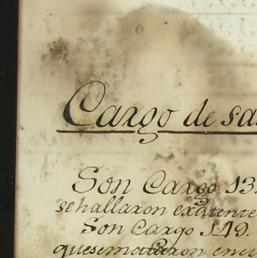 Cargo de sa
Son Cargo 13
se hallaron existente
Son Cargo 149.
que se mataron en